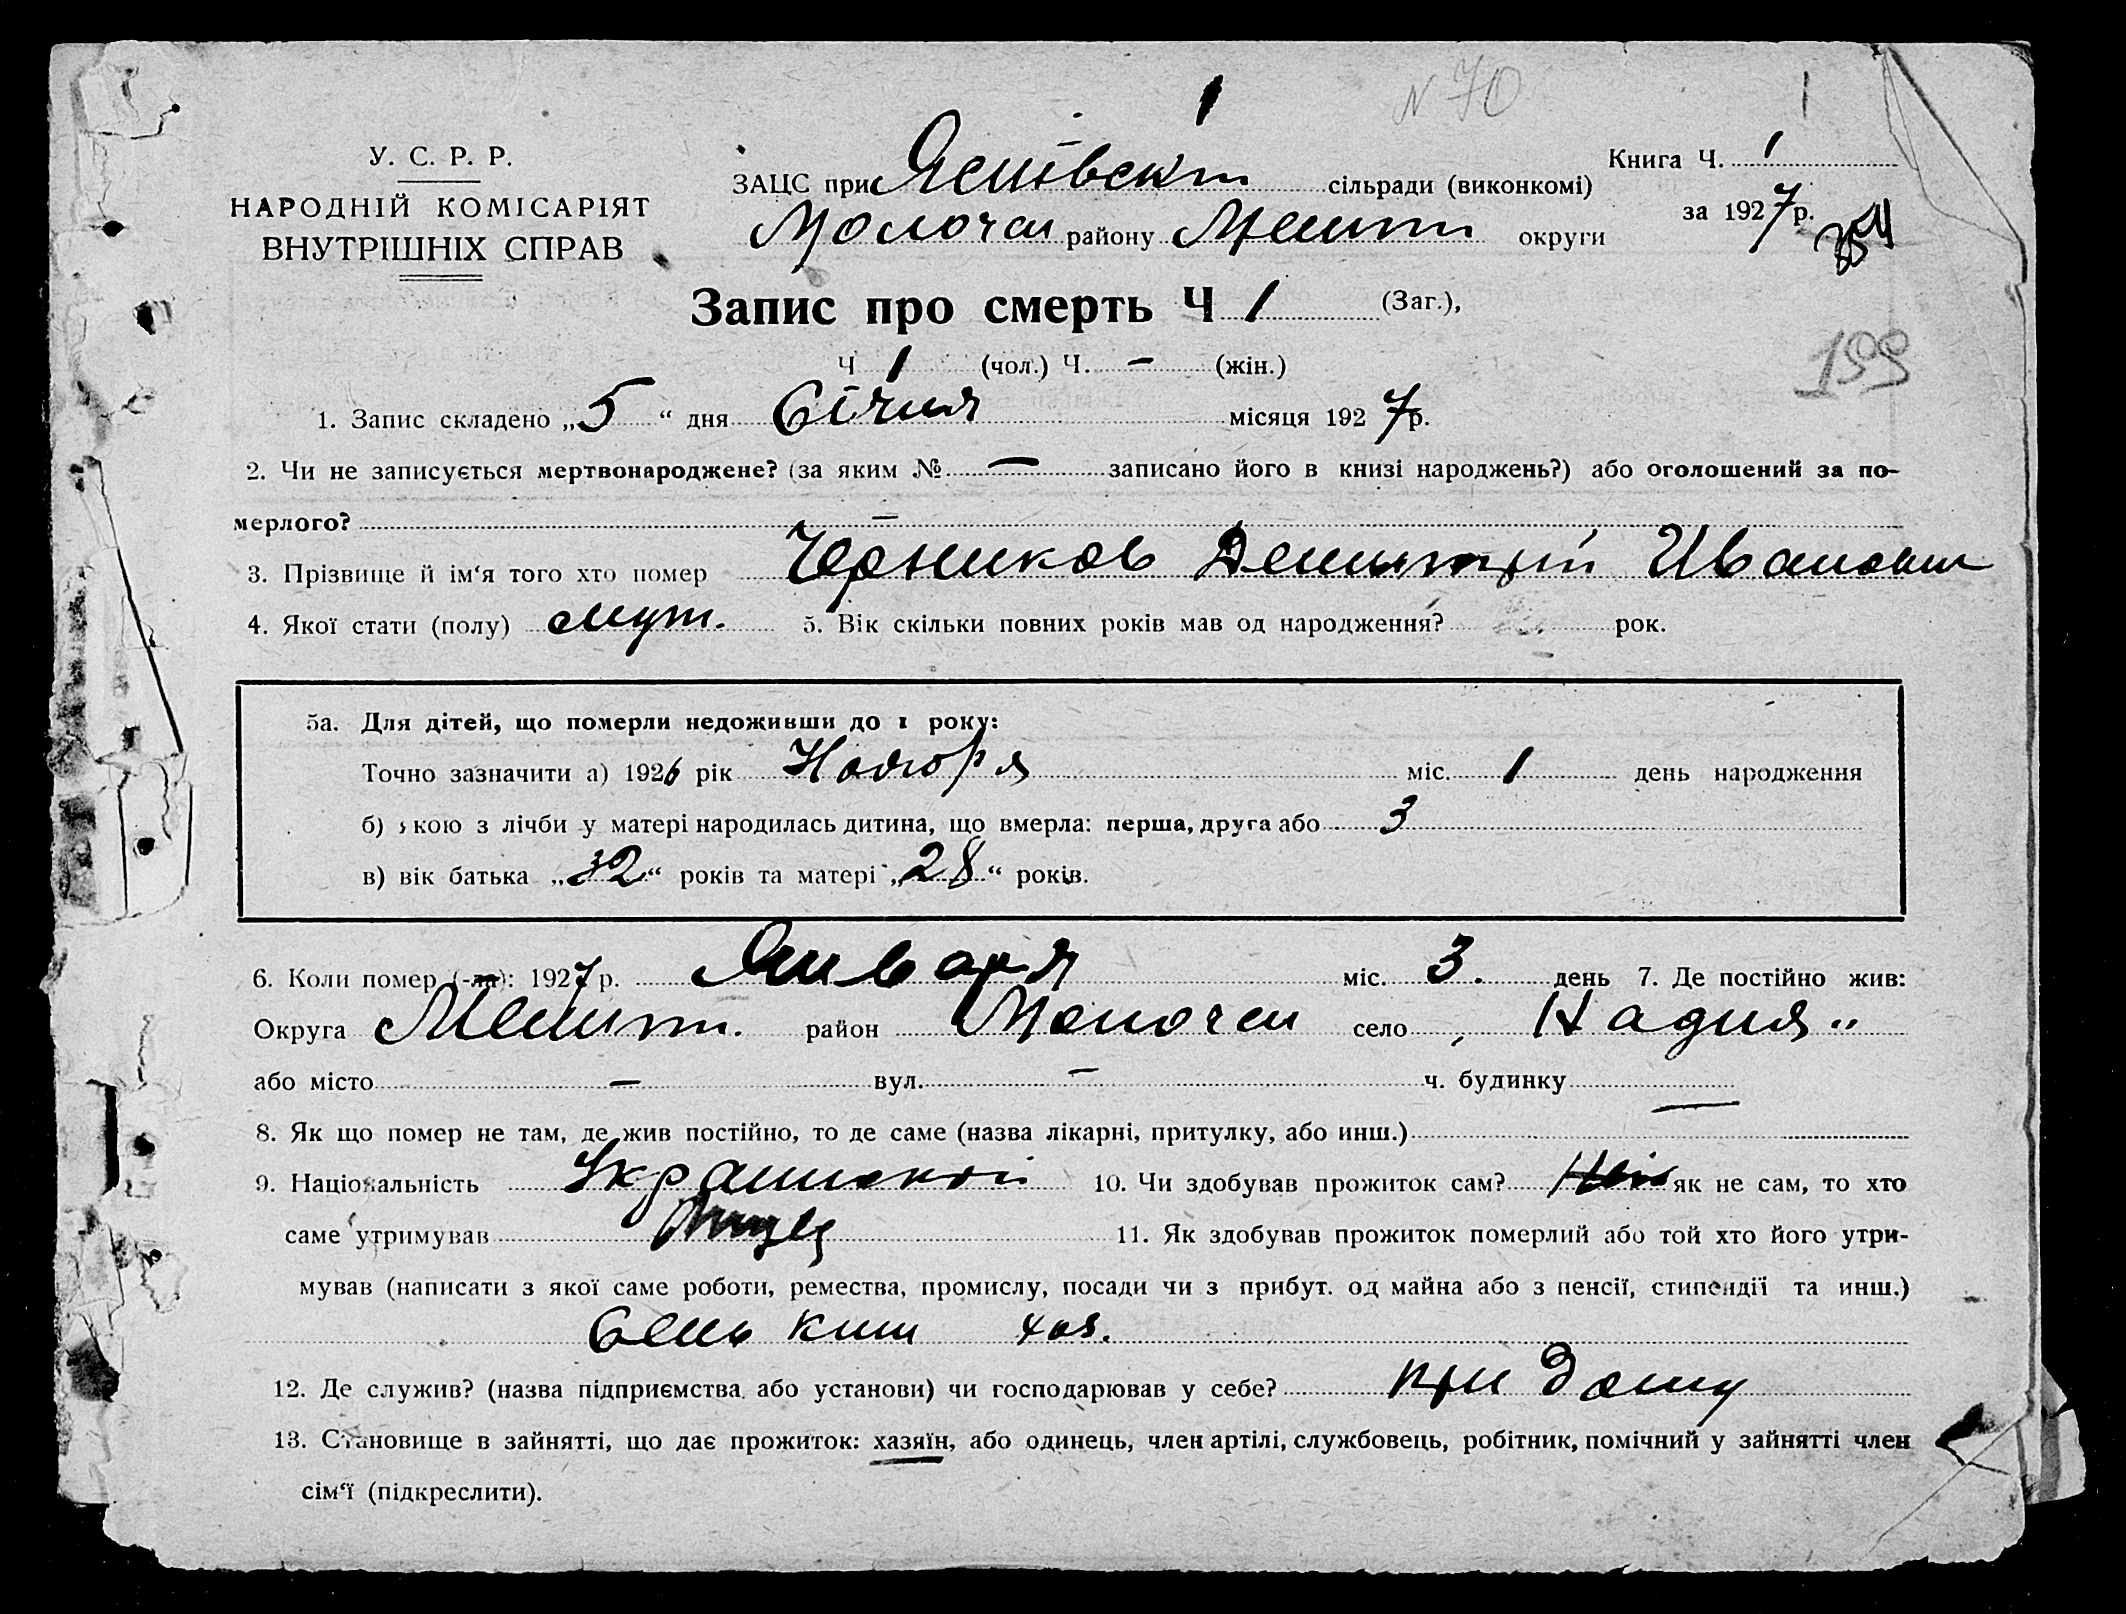 № 70
1
1
У. С. Р. Р.
НАРОДНІЙ КОМІСАРІЯТ
ВНУТРІШНІХ СПРАВ
ЗАЦС при сільради (виконкомі)
Молочан району Меліт округи
Книга Ч. 1
за 1927 р.
199
Запис про смерть Ч 1 (Заг.),
Ч 1 (чол.) Ч. — (жін.)
1. Запис складено „5“ дня Січня місяця 1927 р.
2. Чи не записується мертвонароджене? (за яким № — записано його в книзі народжень?) або оголошений за по-
мерлого? —
3. Прізвище й ім‘я того хто помер Черников Димитрій Иванович
4. Якої стати (полу) муж. 5. Вік скільки повних років мав од народження? рок.
5а. Для дітей, що померли недоживши до 1 року:
Точно зазначити а) 1926 рік Ноября міс. 1 день народження
б) якою з лічби у матері народилась дитина, що вмерла: перша, друга або 3
в) вік батька „32“ років та матері „28“ років.
6. Коли помер (-ла): 1927 р. Января міс. 3. день 7. Де постійно жив:
Округа Меліт. район Молочан село „Надия“
або місто — вул. — ч. будинку —
8. Як що помер не там, де жив постійно, то де саме (назва лікарні, притулку, або инш.)
9. Національність 10. Чи здобував прожиток сам? Ні як не сам, то хто
саме утримував Отец 11. Як здобував прожиток померлий або той хто його утри-
мував (написати з якої саме роботи, ремества, промислу, посади чи з прибут. од майна або з пенсії, стипендії та инш.)
Сель хоз.
12. Де служив? (назва підприємства або установи) чи господарював у себе? при дому
13. Становище в зайнятті, що дає прожиток: хазяїн, або одинець, член артілі, службовець, робітник, помічний у зайнятті член
сім‘ї (підкреслити).